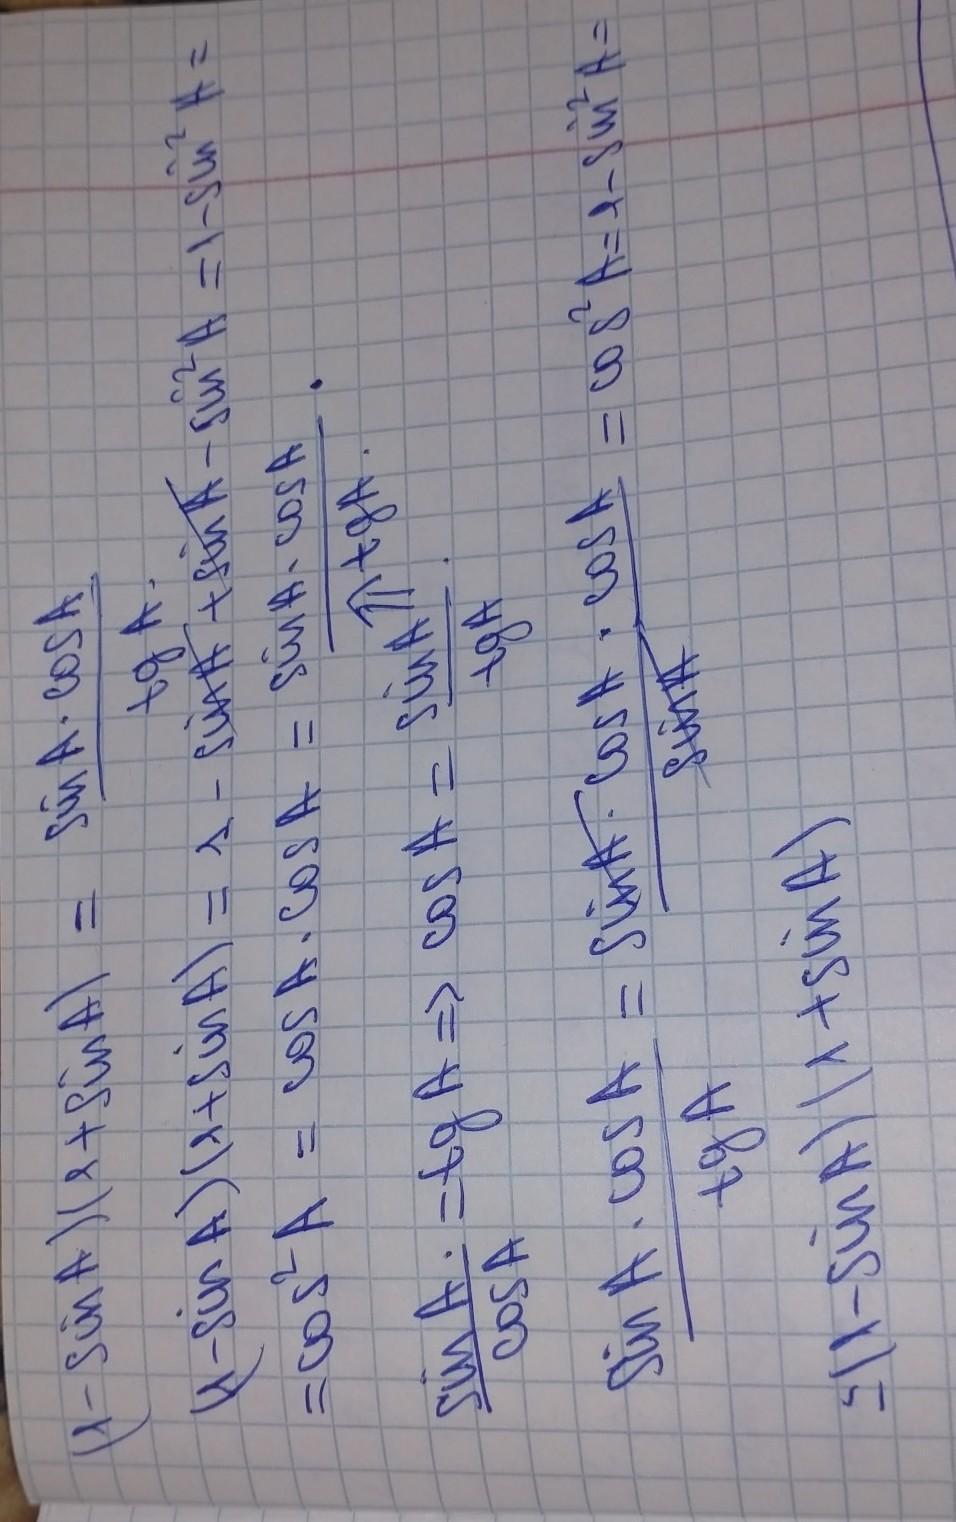 (1-sinA)(1+sinA) = sinA·cosA / tgA.
(1-sinA)(1+sinA) = 1-sinA+sinA-sin²A = 1-sin²A =
=cos²A = cosA·cosA = sinA·cosA / tgA.
sinA / cosA = tgA => cosA = sinA / tgA.
sinA·cosA / tgA = sinA·cosA·cosA / sinA = cos²A = 1-sin²A =
=(1-sinA)(1+sinA)